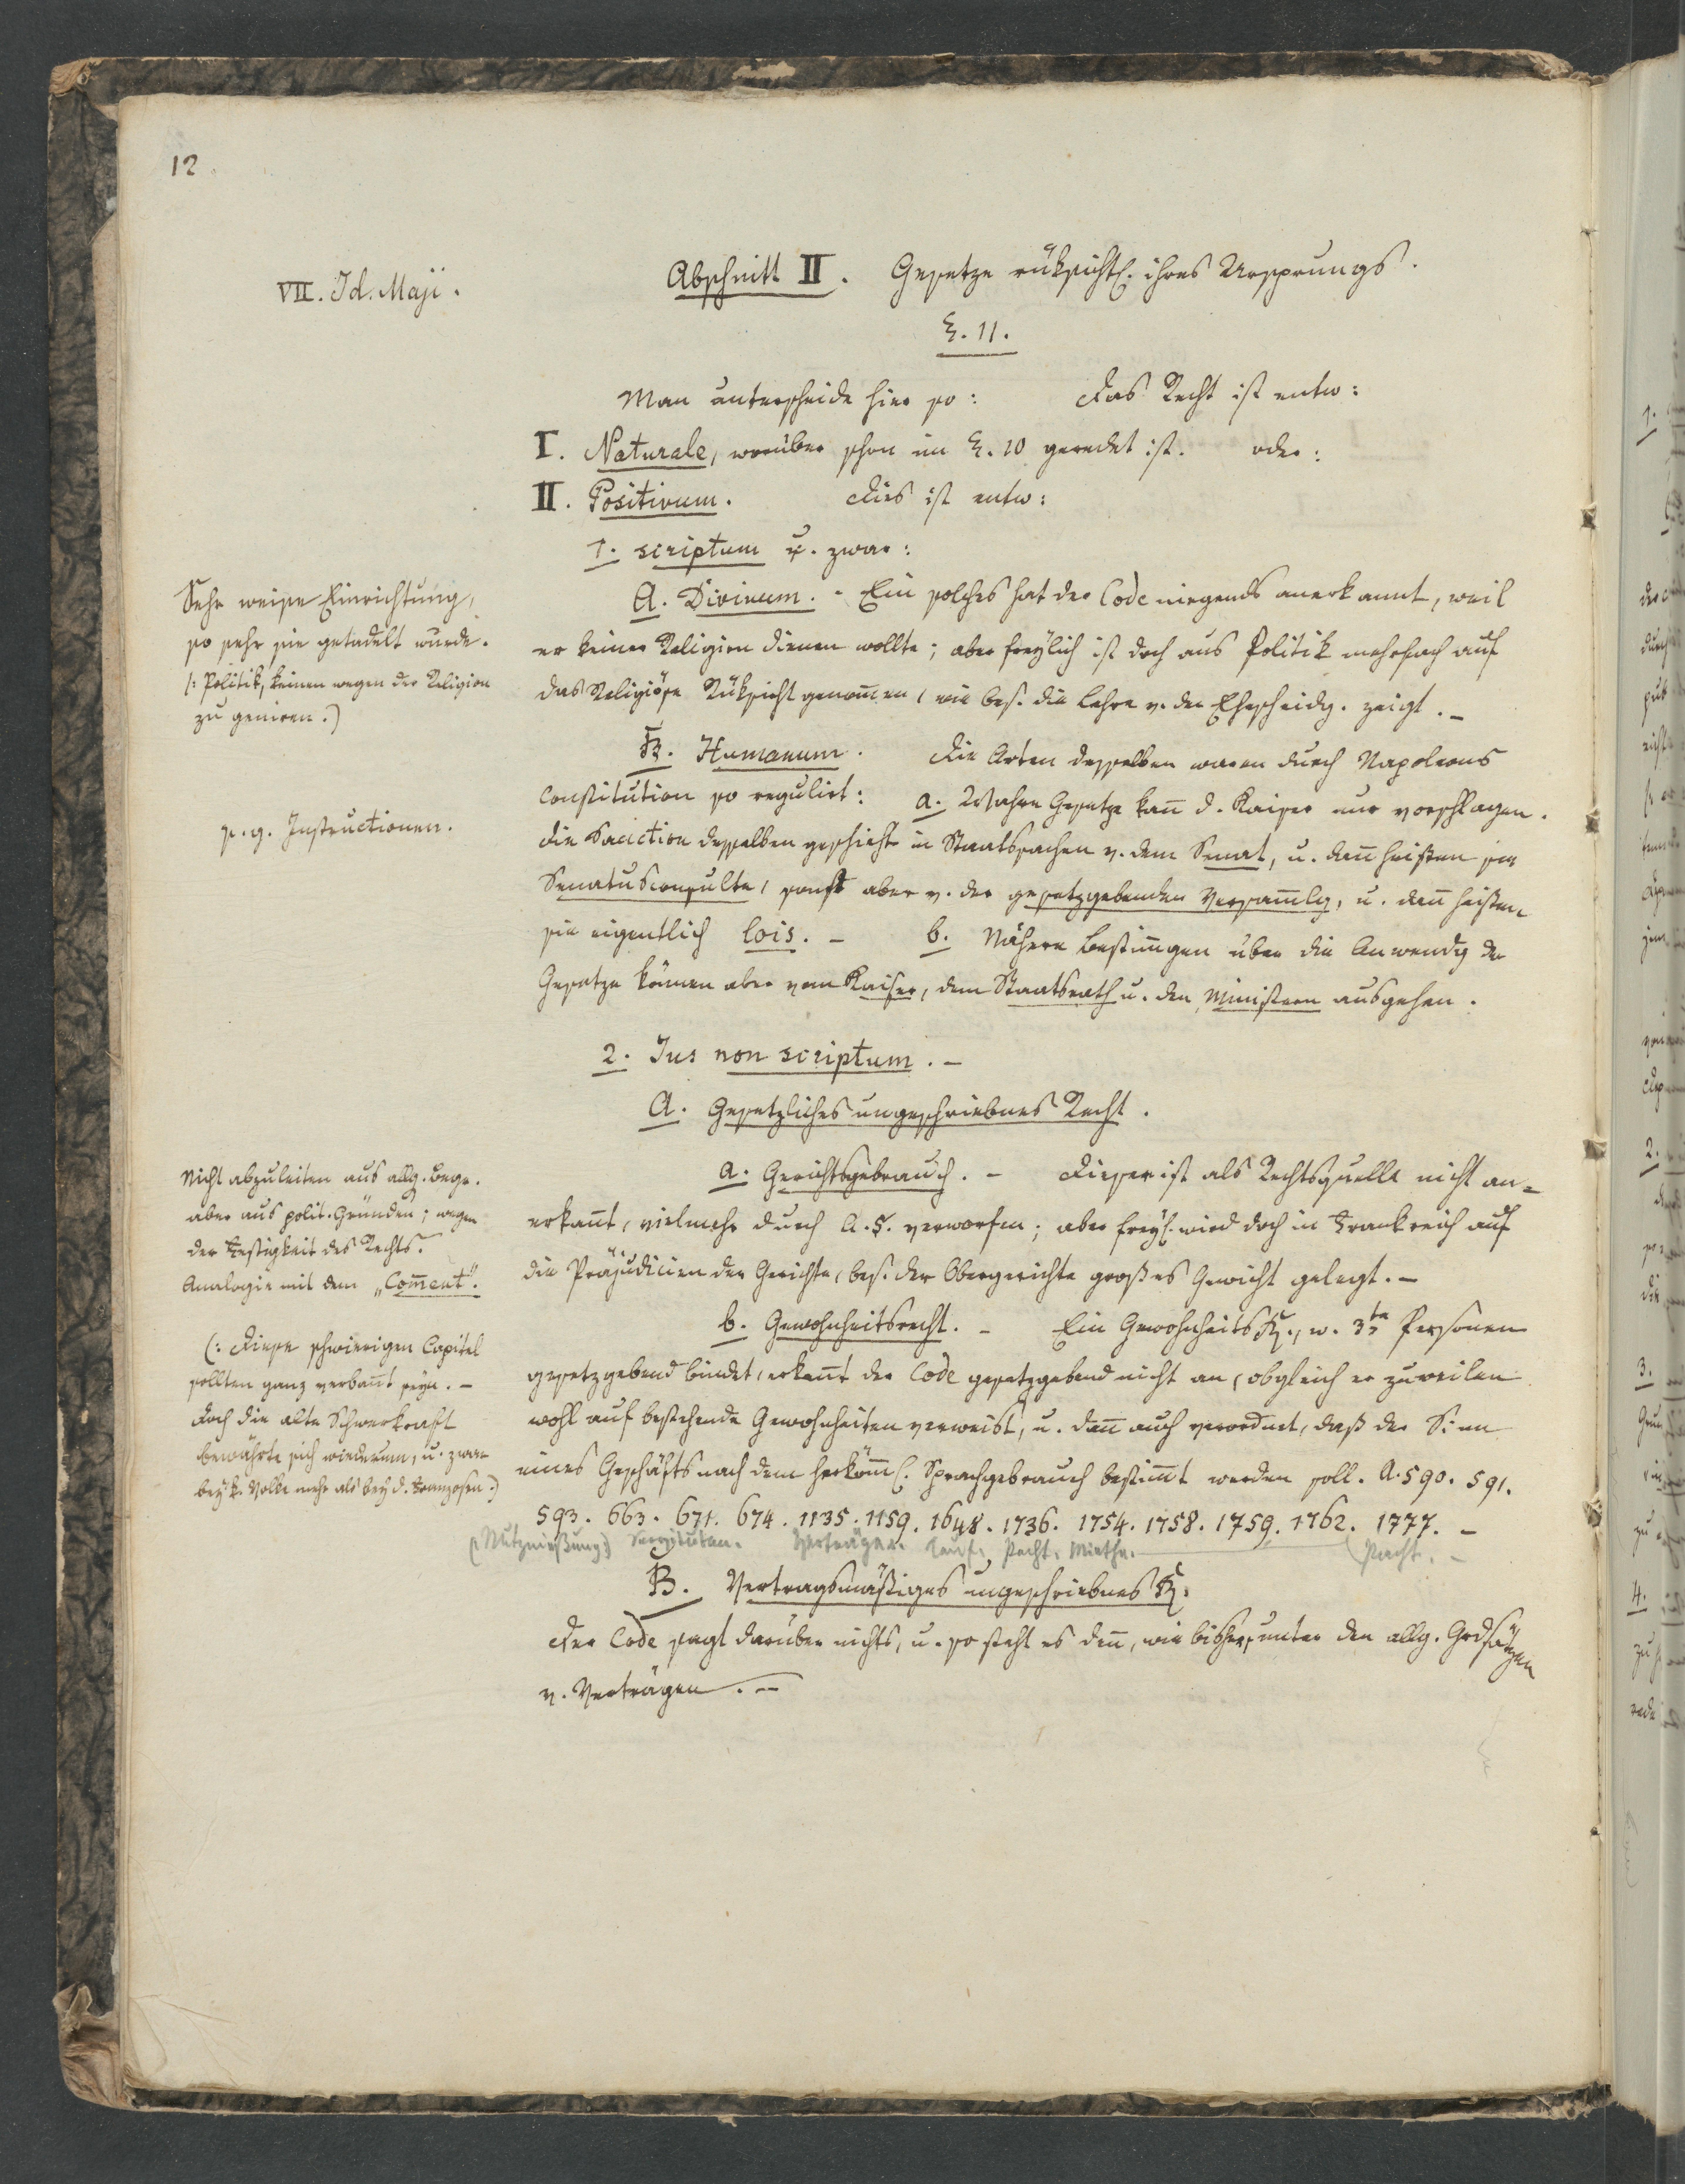 12
VII. Id. Maji.
Abschnitt II. Gesetze rüksichtl. ihres Ursprungs.
§. 11.
Man unterscheide hier so: Das Recht ist entw:
I. Naturale, worüber schon im §. 10 geredet ist. oder:
II. Positivum. Dies ist entw:
1. scriptum u. zwar:
A. Divinum. - Ein solches hat der Code nirgends anerkannt, weil
er keiner Religion dienen wollte; aber freylich ist doch aus Politik mehrfach auf
das Religiöse Rüksicht genom̄en, wie bes. die Lehre v. der Ehescheidg. zeigt. –
Sehr weise Einrichtung,
so sehr sie getadelt wurde.
(: Politik, keinen wegen der Religion
zu geniren.)
B. Humanum. Die Arten desselben waren durch Napoleons
Constitution so regulirt: a. Wahre Gesetze kan̄ d. Kaiser nur vorschlagen.
Die Sanction desselben geschieht in Staatssachen v. dem Senat, u. dan̄ heißen sie
Senatusconsulte, sonst aber v. der gesetzgebenden Versam̄lg, u. dan̄ heißen
sie eigentlich lois. – b. Nähere Bestim̄ngen über die Anwendg der
Gesetze können aber vom Kaiser, dem Staatsrath u. den Ministern ausgehen.
s. g. Instructionen.
2. Jus non scriptum. –
A. Gesetzliches ungeschriebnes Recht.
a. Gerichtsgebrauch. – Dieser ist als Rechtsquelle nicht an=
erkan̄t, vielmehr durch A. 5. verworfen; aber freyl. wird doch in Frankreich auf
die Präjudicien der Gerichte, bes. der Obergerichte großes Gewicht gelegt. –
Nicht abzuleiten aus allg. Begr.
aber aus polit. Gründen; wegen
der Festigkeit des Rechts.
Analogie mit dem „Com̄ent".
b. Gewohnheitsrecht. – Ein Gewohnheits R., w. 3te Personen
gesetzgebend bindet, erkennt der Code gesetzgebend nicht an, obgleich er zuweilen
wohl auf bestehende Gewohnheiten verweist, u. dan̄ auch verordnet, daß der Sinn
eines Geschäfts nach dem herköm̄l. Sprachgebrauch bestim̄t werden soll. A. 590. 591.
593. 663. 671. 674. 1135. 1159. 1648. 1736. 1754. 1758. 1759. 1762. 1777. –
(: Nutznießung:) Servituten. Verträge. Kauf. Pacht. Miethe. Pacht. –
(: Diese schwierigen Capitel
sollten ganz verban̄t seyn. –
Doch die alte Schwerkraft
bewährte sich wiederum, u. zwar
bey k. Volke mehr als bey d. Franzosen.)
B. Vertragsmäßiges ungeschriebnes R.
Der Code sagt darüber nichts, u. so steht es den̄, wie bisher, unter den allg. Grdsätzen
v. Verträgen. –